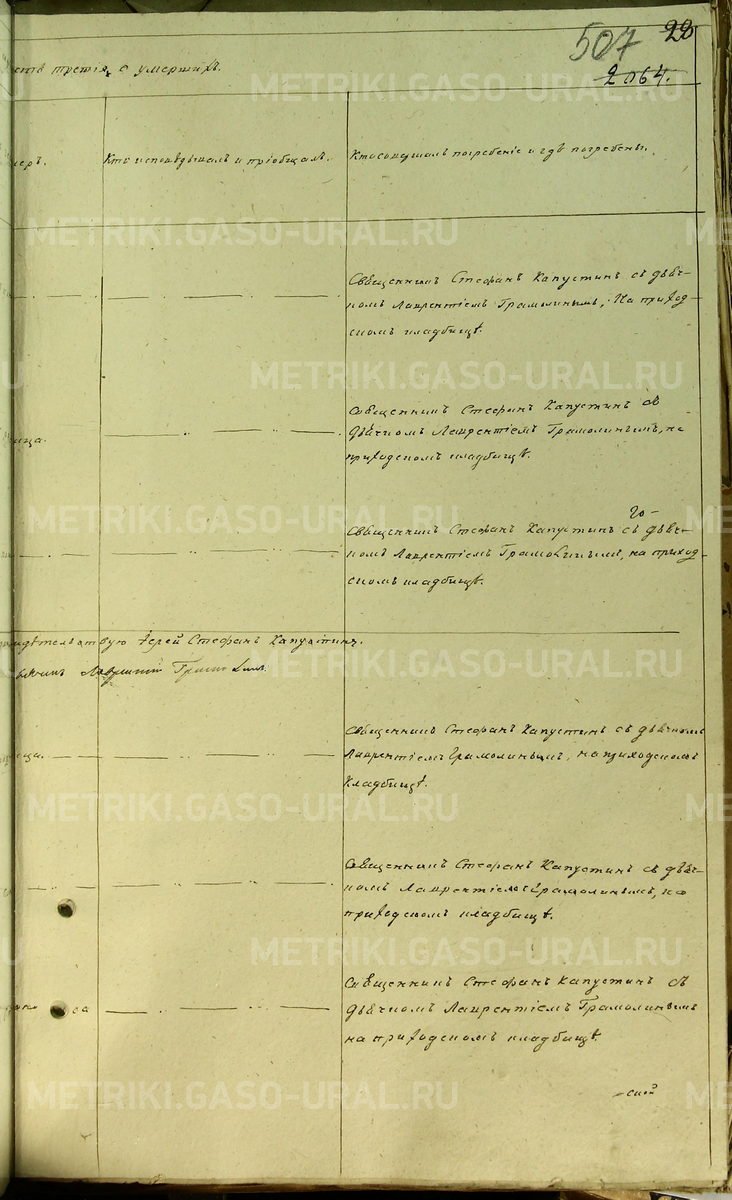 507 28
2064.
третія, о умершихъ.
Кто исповѣдывалъ и пріобщалъ.
Кто совершалъ погребеніе и гдѣ погребены.
Священникъ Стефанъ Капустинъ съ дьяч-
комъ Лаврентіемъ Грамолинымъ, На приход-
скомъ кладбищѣ.
Священникъ Стефанъ Капустинъ съ
дьячкомъ Лаврентіемъ Грамолинымъ, на
приходскомъ кладбищѣ.
Священникъ Стефанъ Капустинъ съ дьяч-
комъ Лаврентіемъ Грамолинымъ, на приход-
скомъ кладбищѣ.
Іерей Стефанъ Капустинъ.
Священникъ Стефанъ Капустинъ съ дьячкомъ
Лаврентіемъ Грамолинымъ, на приходскомъ
кладбищѣ.
Священникъ Стефанъ Капустинъ съ дьяч-
комъ Лаврентіемъ Грамолинымъ, на
приходскомъ кладбищѣ.
Священникъ Стефанъ Капустинъ съ
дьячкомъ Лаврентіемъ Грамолинымъ
на приходскомъ кладбищѣ.
-ской
METRIKI.GASO-URAL.RU